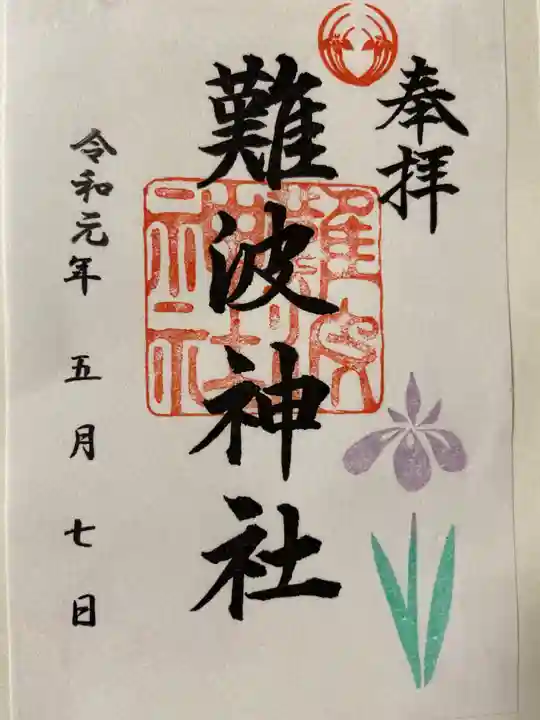 奉拝
難波神社
難波
神社
令和元年 五月 七日